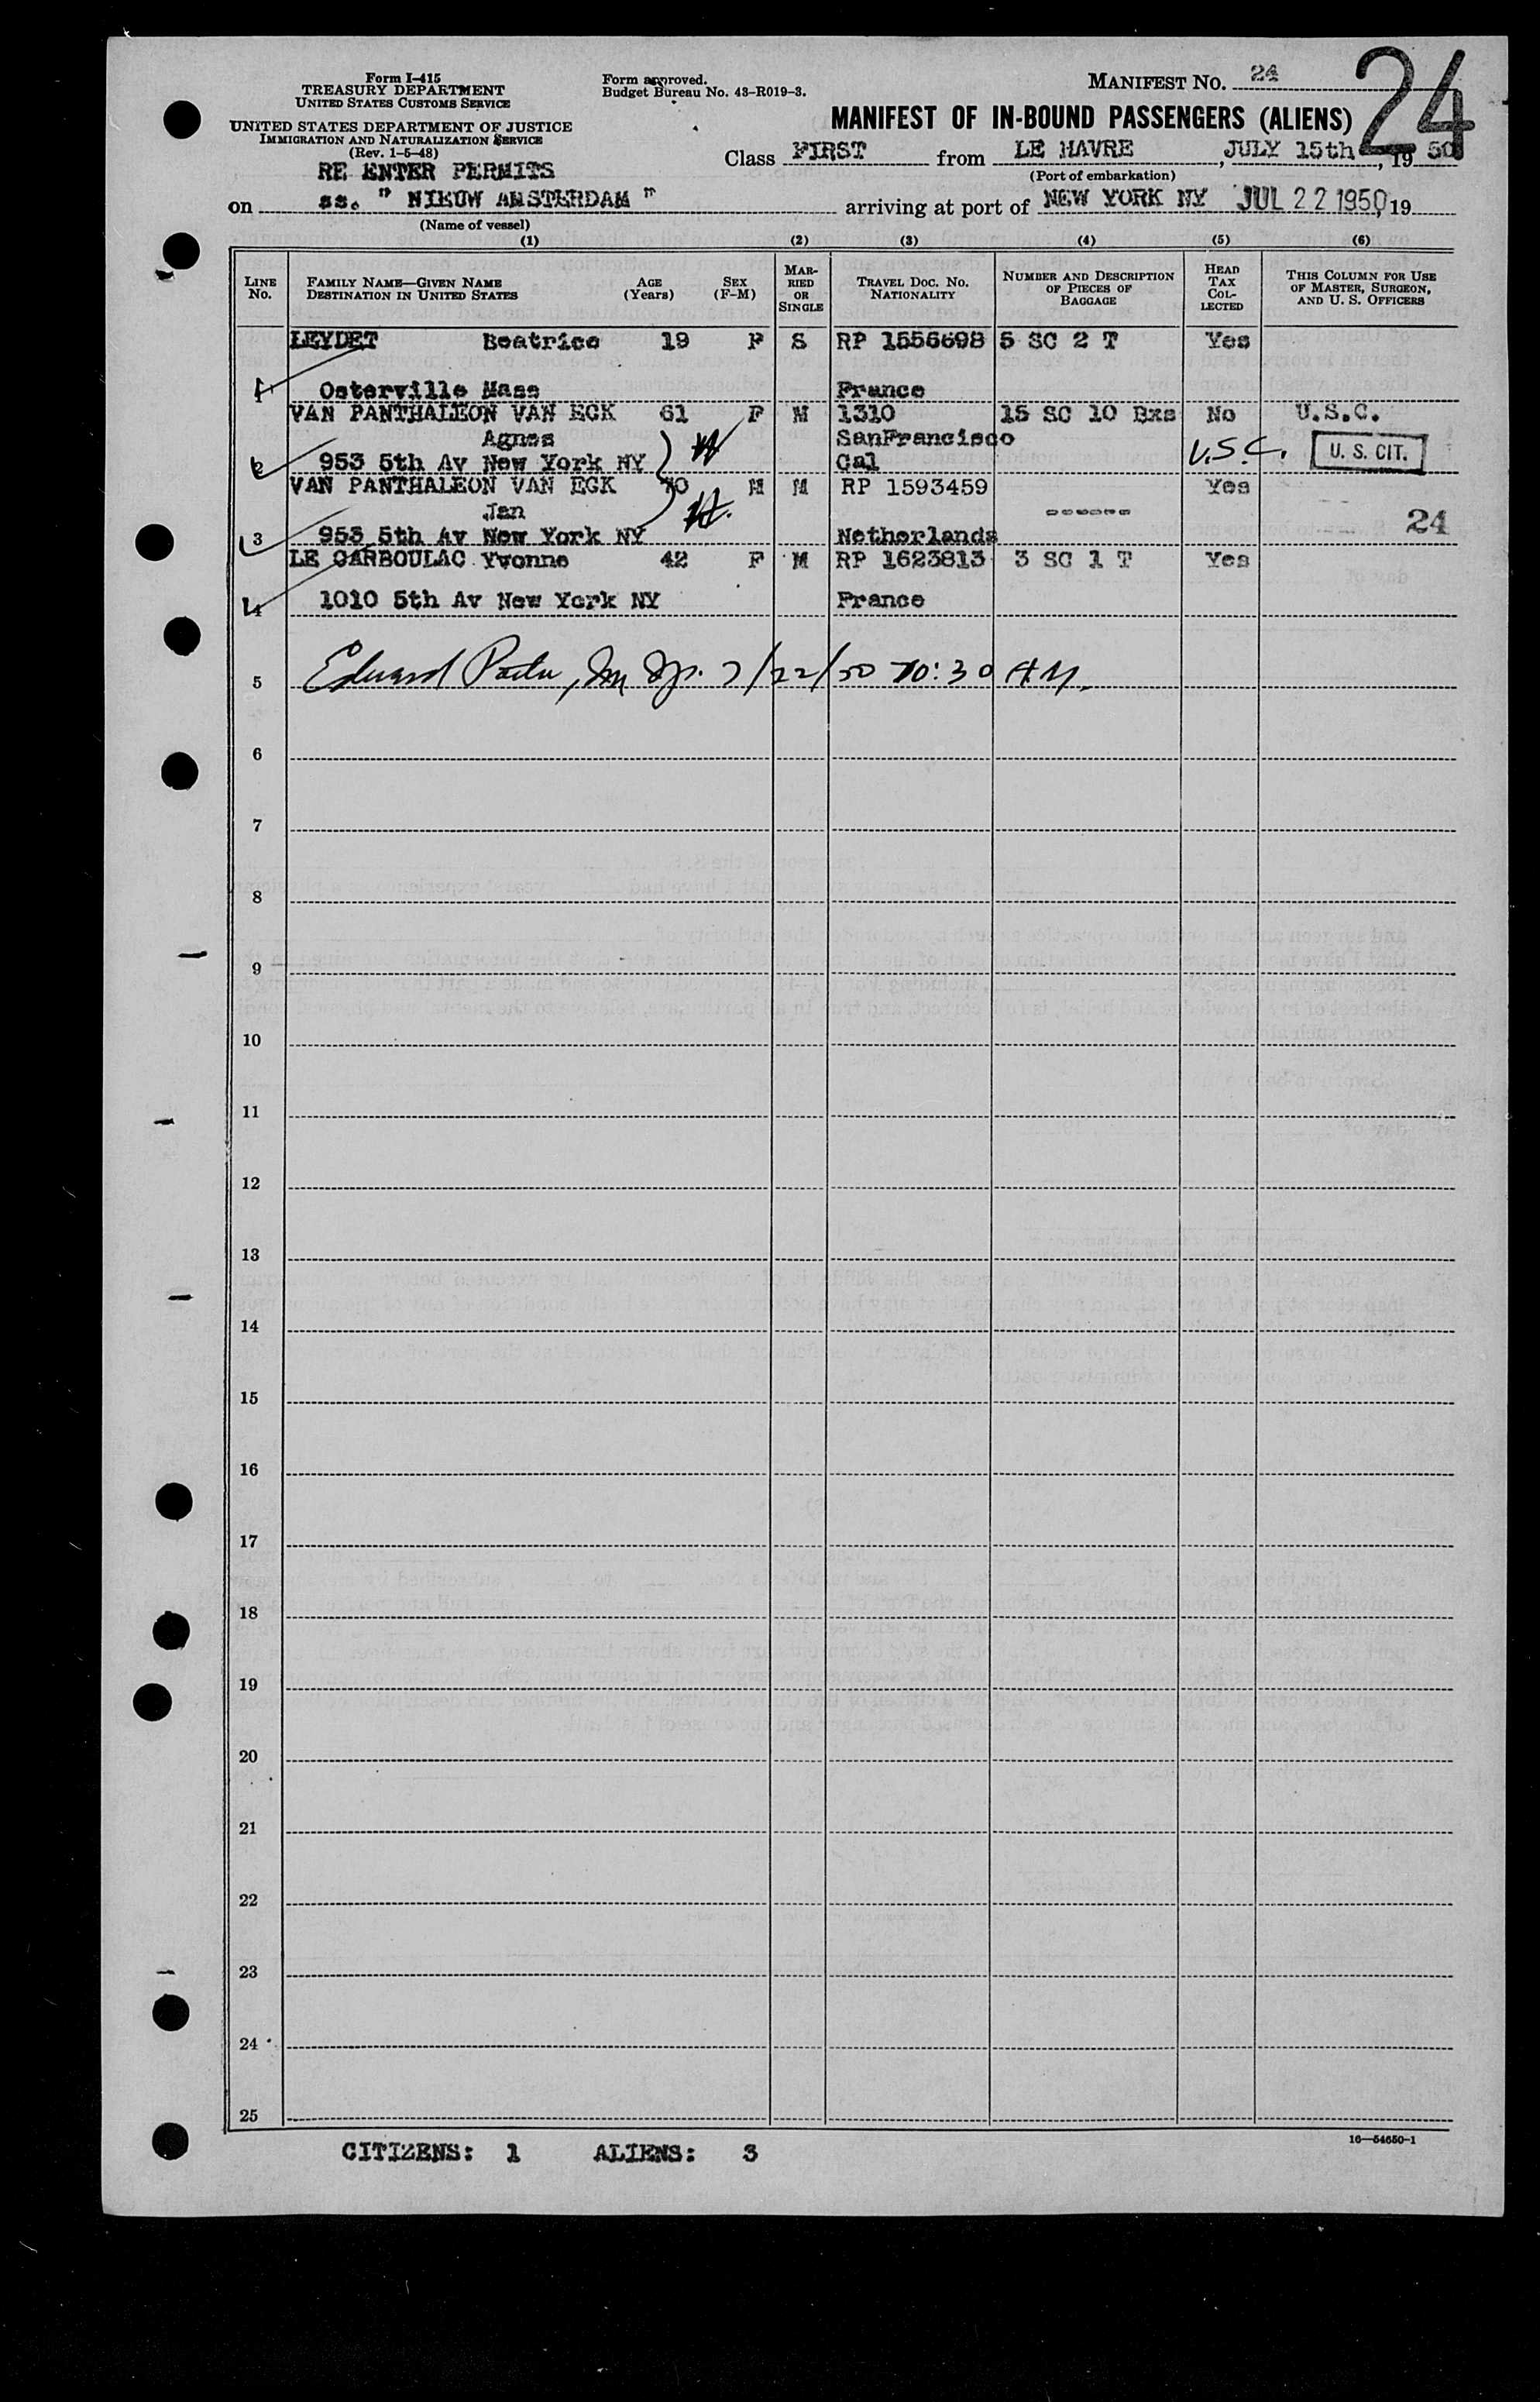 Form I-415
TREASURY DEPARTMENT
UNITED STATES CUSTOMS SERVICE
UNITED STATES DEPARTMENT OF JUSTICE
IMMIGRATION AND NATURALIZATION SERVICE
(Rev. 1-5-48)
Form approved.
Budget Bureau No. 43-R019-3.
MANIFEST NO. 24
24
MANIFEST OF IN-BOUND PASSENGERS (ALIENS)
Class FIRST from LE HAVRE, JULY 15th, 19 50
(Port of embarkation)
RE ENTER PERMITS
on ss. " NIEUW AMSTERDAM " arriving at port of NEW YORK NY JUL 22 1950, 19
(Name of vessel)
(1) (2) (3) (4) (5) (6)
LINE No. FAMILY NAME—GIVEN NAME DESTINATION IN UNITED STATES AGE (Years) SEX (F-M) MARRIED OR SINGLE TRAVEL DOC. NO. NATIONALITY NUMBER AND DESCRIPTION OF PIECES OF BAGGAGE HEAD TAX COLLECTED THIS COLUMN FOR USE OF MASTER, SURGEON, AND U. S. OFFICERS
LEYDET Beatrice 19 F S RP 1556698 5 SC 2 T Yes
1 Osterville Mass France
VAN PANTHALEON VAN ECK 61 F M 1310 15 SC 10 Bxs No U.S.C.
Agnes SanFrancisco
2 953 5th Av New York NY Cal U.S.C. U. S. CIT.
VAN PANTHALEON VAN ECK 70 M M RP 1593459 Yes
Jan ------ 24
3 953 5th Av New York NY Netherlands
LE CARBOULAC Yvonne 42 F M RP 1623813 3 SC 1 T Yes
4 1010 5th Av New York NY France
5 Edward 7/22/50 10:30 AM.
6
7
8
9
10
11
12
13
14
15
16
17
18
19
20
21
22
23
24
25
16—54650-1
CITIZENS: 1 ALIENS: 3